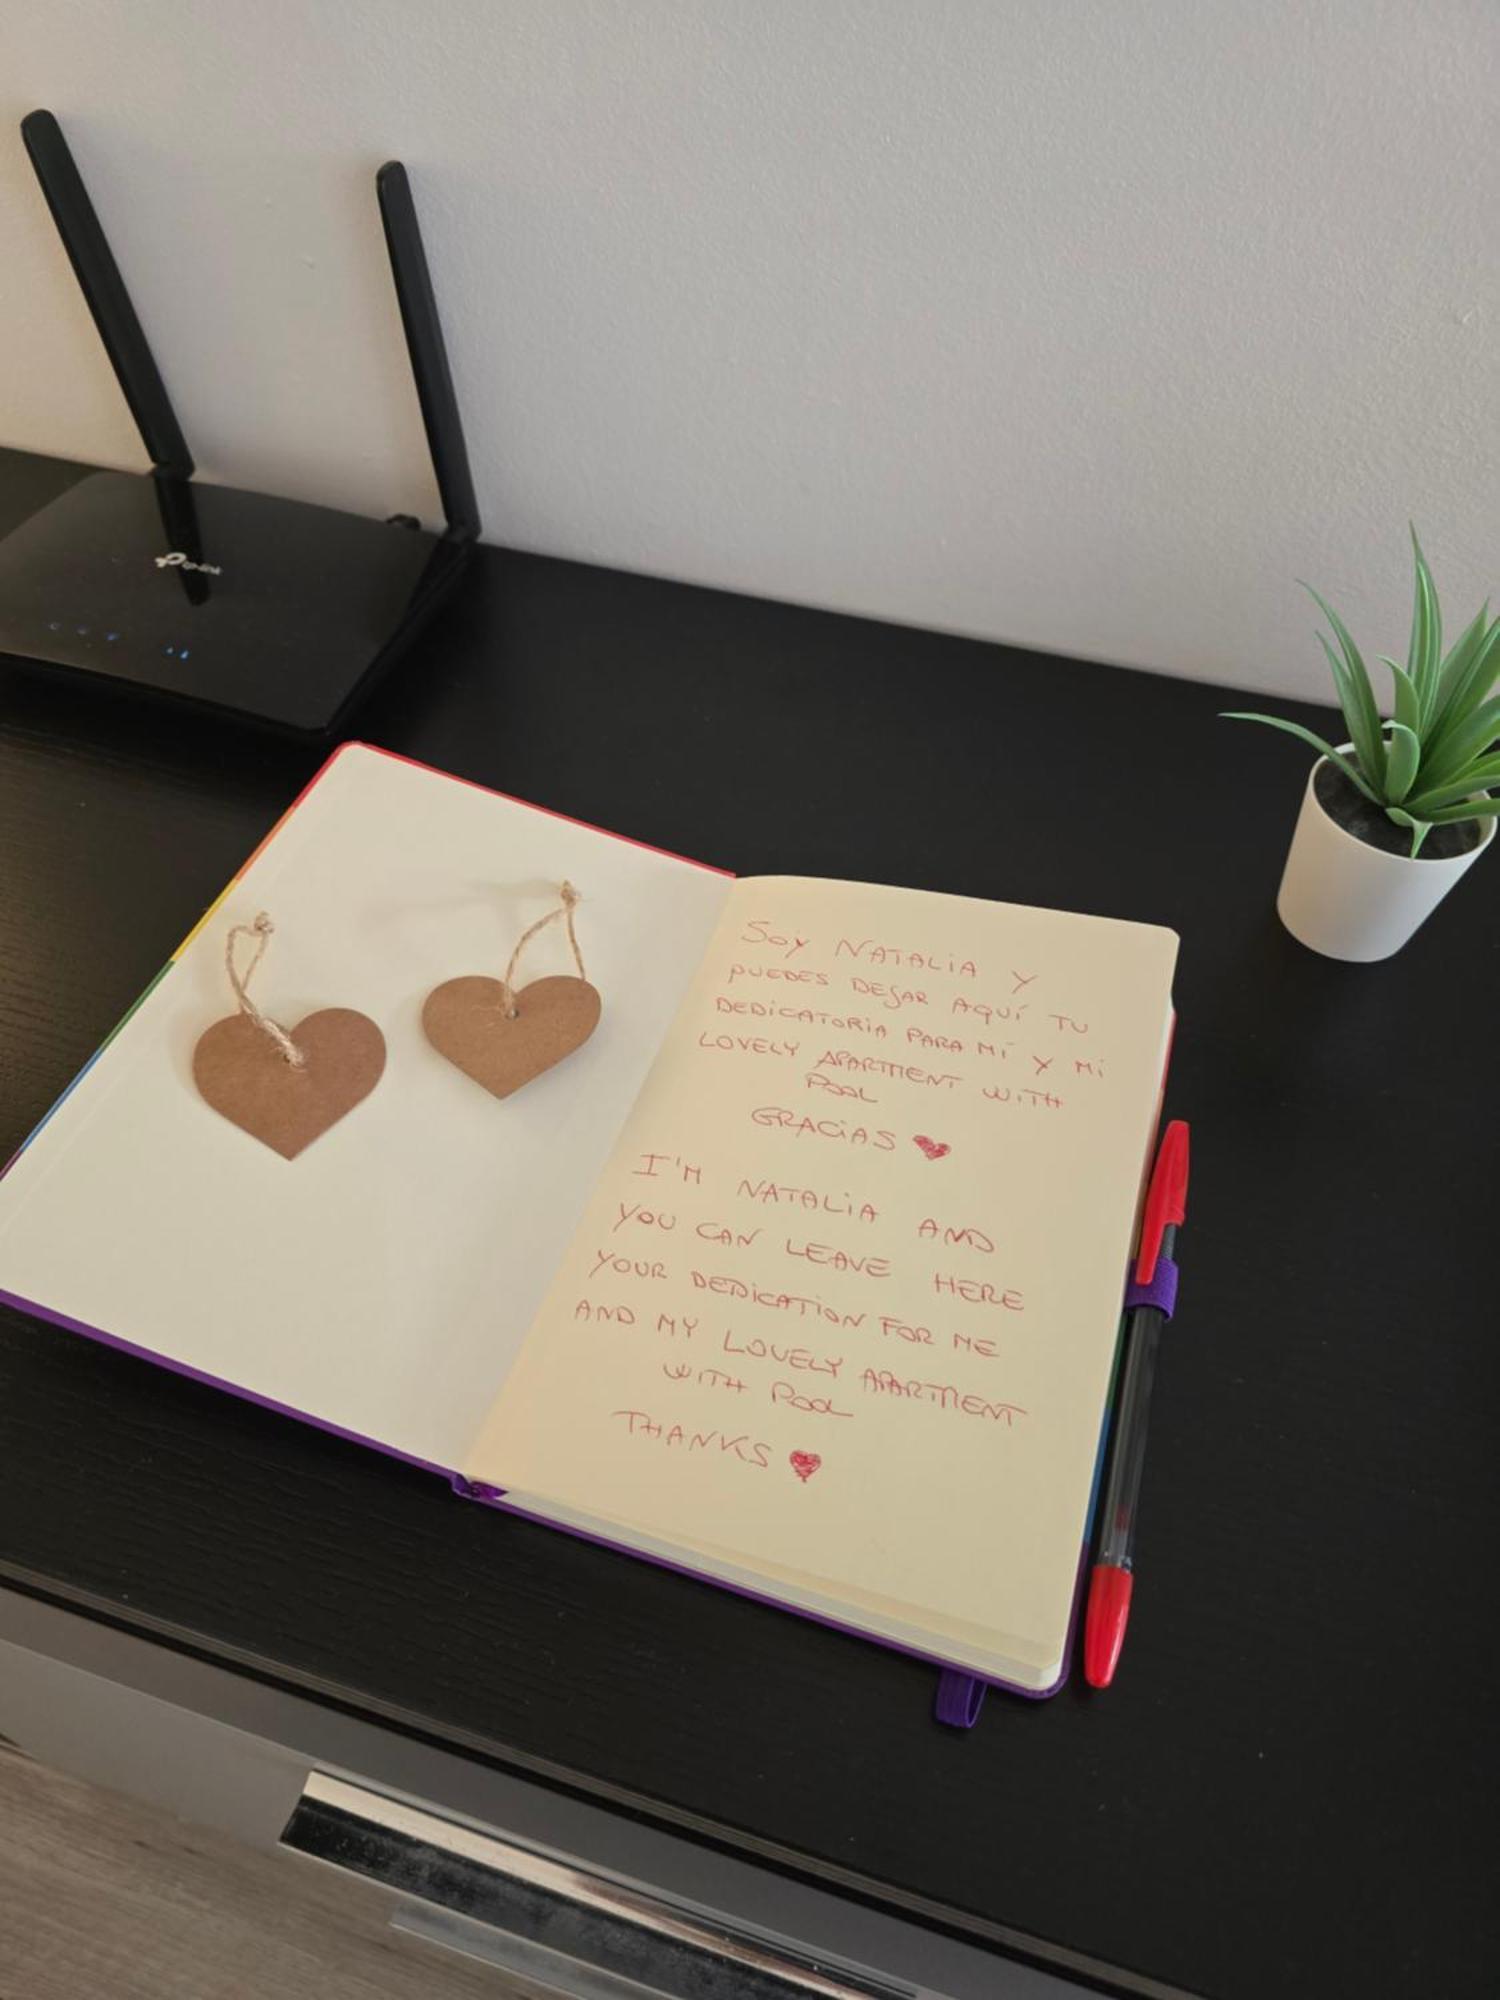 tp-link
SOY NATALIA Y
PUEDES DEJAR AQUÍ TU
DEDICATORIA PARA MÍ Y MI
LOVELY APARTMENT WITH
POOL
GRACIAS ❤
I'M NATALIA AND
YOU CAN LEAVE HERE
YOUR DEDICATION FOR ME
AND MY LOVELY APARTMENT
WITH POOL
THANKS ❤